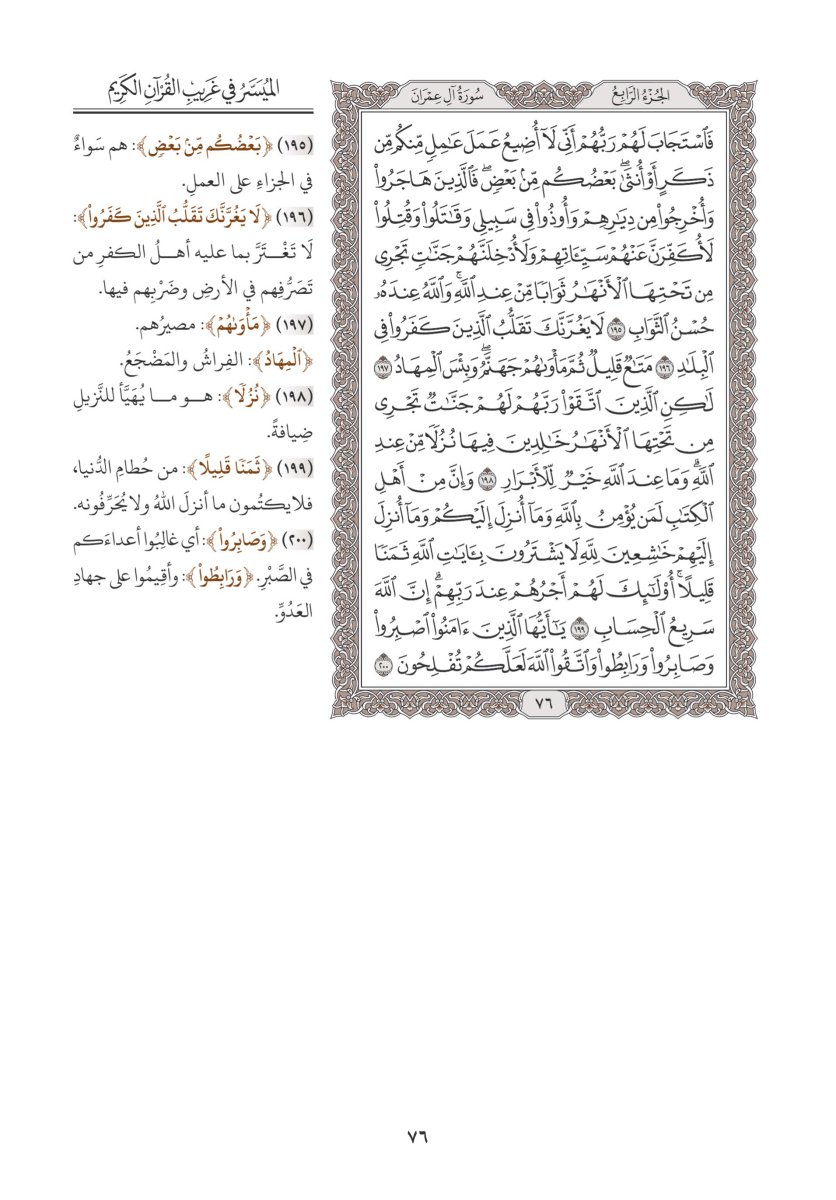 الجُزْءُ الرَّابِعُ
سُورَةُ آلِ عِمْرَان
فَٱسْتَجَابَ لَهُمْ رَبُّهُمْ أَنِّى لَآ أُضِيعُ عَمَلَ عَٰمِلٍ مِّنكُم مِّن
ذَكَرٍ أَوْ أُنثَىٰۖ بَعْضُكُم مِّنۢ بَعْضٍۖ فَٱلَّذِينَ هَاجَرُواْ
وَأُخْرِجُواْ مِن دِيَٰرِهِمْ وَأُوذُواْ فِى سَبِيلِى وَقَٰتَلُواْ وَقُتِلُواْ
لَأُكَفِّرَنَّ عَنْهُمْ سَيِّـَٔاتِهِمْ وَلَأُدْخِلَنَّهُمْ جَنَّٰتٍ تَجْرِى
مِن تَحْتِهَا ٱلْأَنْهَٰرُ ثَوَابًا مِّنْ عِندِ ٱللَّهِۗ وَٱللَّهُ عِندَهُۥ
حُسْنُ ٱلثَّوَابِ ١٩٥ لَا يَغُرَّنَّكَ تَقَلُّبُ ٱلَّذِينَ كَفَرُواْ فِى
ٱلْبِلَٰدِ ١٩٦ مَتَٰعٌ قَلِيلٌ ثُمَّ مَأْوَىٰهُمْ جَهَنَّمُۖ وَبِئْسَ ٱلْمِهَادُ ١٩٧
لَٰكِنِ ٱلَّذِينَ ٱتَّقَوْاْ رَبَّهُمْ لَهُمْ جَنَّٰتٌ تَجْرِى
مِن تَحْتِهَا ٱلْأَنْهَٰرُ خَٰلِدِينَ فِيهَا نُزُلًا مِّنْ عِندِ
ٱللَّهِۗ وَمَا عِندَ ٱللَّهِ خَيْرٌ لِّلْأَبْرَارِ ١٩٨ وَإِنَّ مِنْ أَهْلِ
ٱلْكِتَٰبِ لَمَن يُؤْمِنُ بِٱللَّهِ وَمَآ أُنزِلَ إِلَيْكُمْ وَمَآ أُنزِلَ
إِلَيْهِمْ خَٰشِعِينَ لِلَّهِ لَا يَشْتَرُونَ بِـَٔايَٰتِ ٱللَّهِ ثَمَنًا
قَلِيلًاۚ أُوْلَٰٓئِكَ لَهُمْ أَجْرُهُمْ عِندَ رَبِّهِمْۗ إِنَّ ٱللَّهَ
سَرِيعُ ٱلْحِسَابِ ١٩٩ يَٰٓأَيُّهَا ٱلَّذِينَ ءَامَنُواْ ٱصْبِرُواْ
وَصَابِرُواْ وَرَابِطُواْ وَٱتَّقُواْ ٱللَّهَ لَعَلَّكُمْ تُفْلِحُونَ ٢٠٠
٧٦
المُيَسَّرُ في غَرِيبِ القُرْآنِ الكَرِيم
(١٩٥) ﴿بَعْضُكُم مِّنۢ بَعْضٍ﴾: هم سَواءٌ
في الجزاءِ على العملِ.
(١٩٦) ﴿لَا يَغُرَّنَّكَ تَقَلُّبُ ٱلَّذِينَ كَفَرُواْ﴾:
لَا تَغْتَرَّ بما عليه أهلُ الكفرِ من
تَصَرُّفِهم في الأرضِ وضَرْبِهم فيها.
(١٩٧) ﴿مَأْوَىٰهُمْ﴾: مصيرُهم.
﴿ٱلْمِهَادُ﴾: الفِراشُ والمَضْجَعُ.
(١٩٨) ﴿نُزُلًا﴾: هو ما يُهَيَّأ للنَّزيلِ
ضِيافةً.
(١٩٩) ﴿ثَمَنًا قَلِيلًا﴾: من حُطامِ الدُّنيا،
فلا يكتُمون ما أنزلَ اللهُ ولا يُحَرِّفُونه.
(٢٠٠) ﴿وَصَابِرُواْ﴾: أي غالِبُوا أعداءَكم
في الصَّبْرِ. ﴿وَرَابِطُواْ﴾: وأقِيمُوا على جهادِ
العَدُوِّ.
٧٦